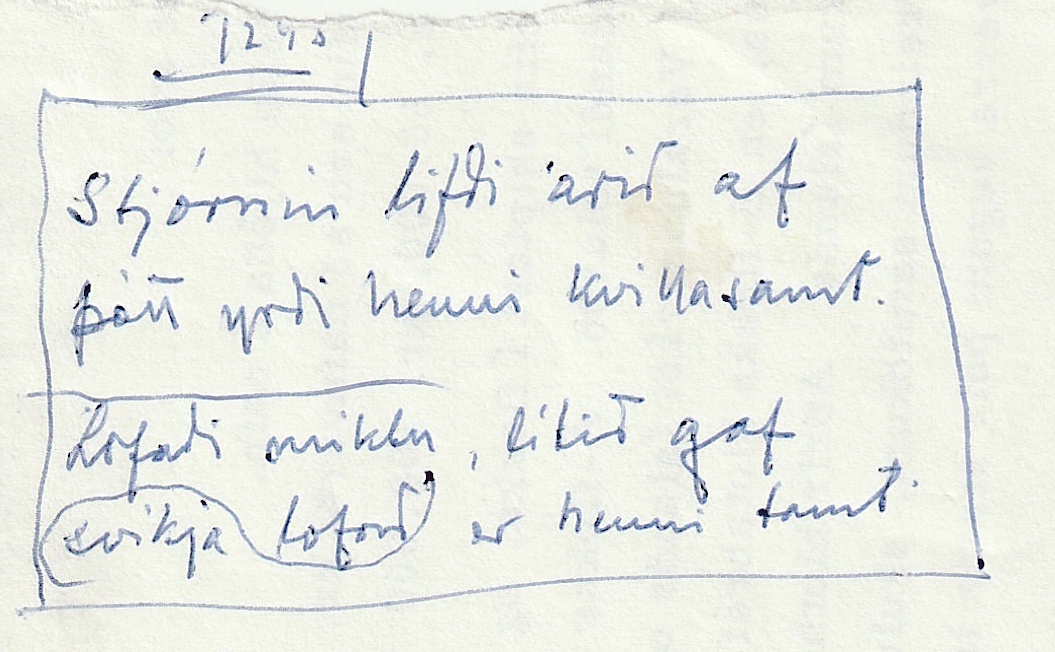 Stjórnin lifði árið af
þótt yrði henni kvillasamt.
Lofaði miklu, lítið gaf
svíkja loforð er henni tamt